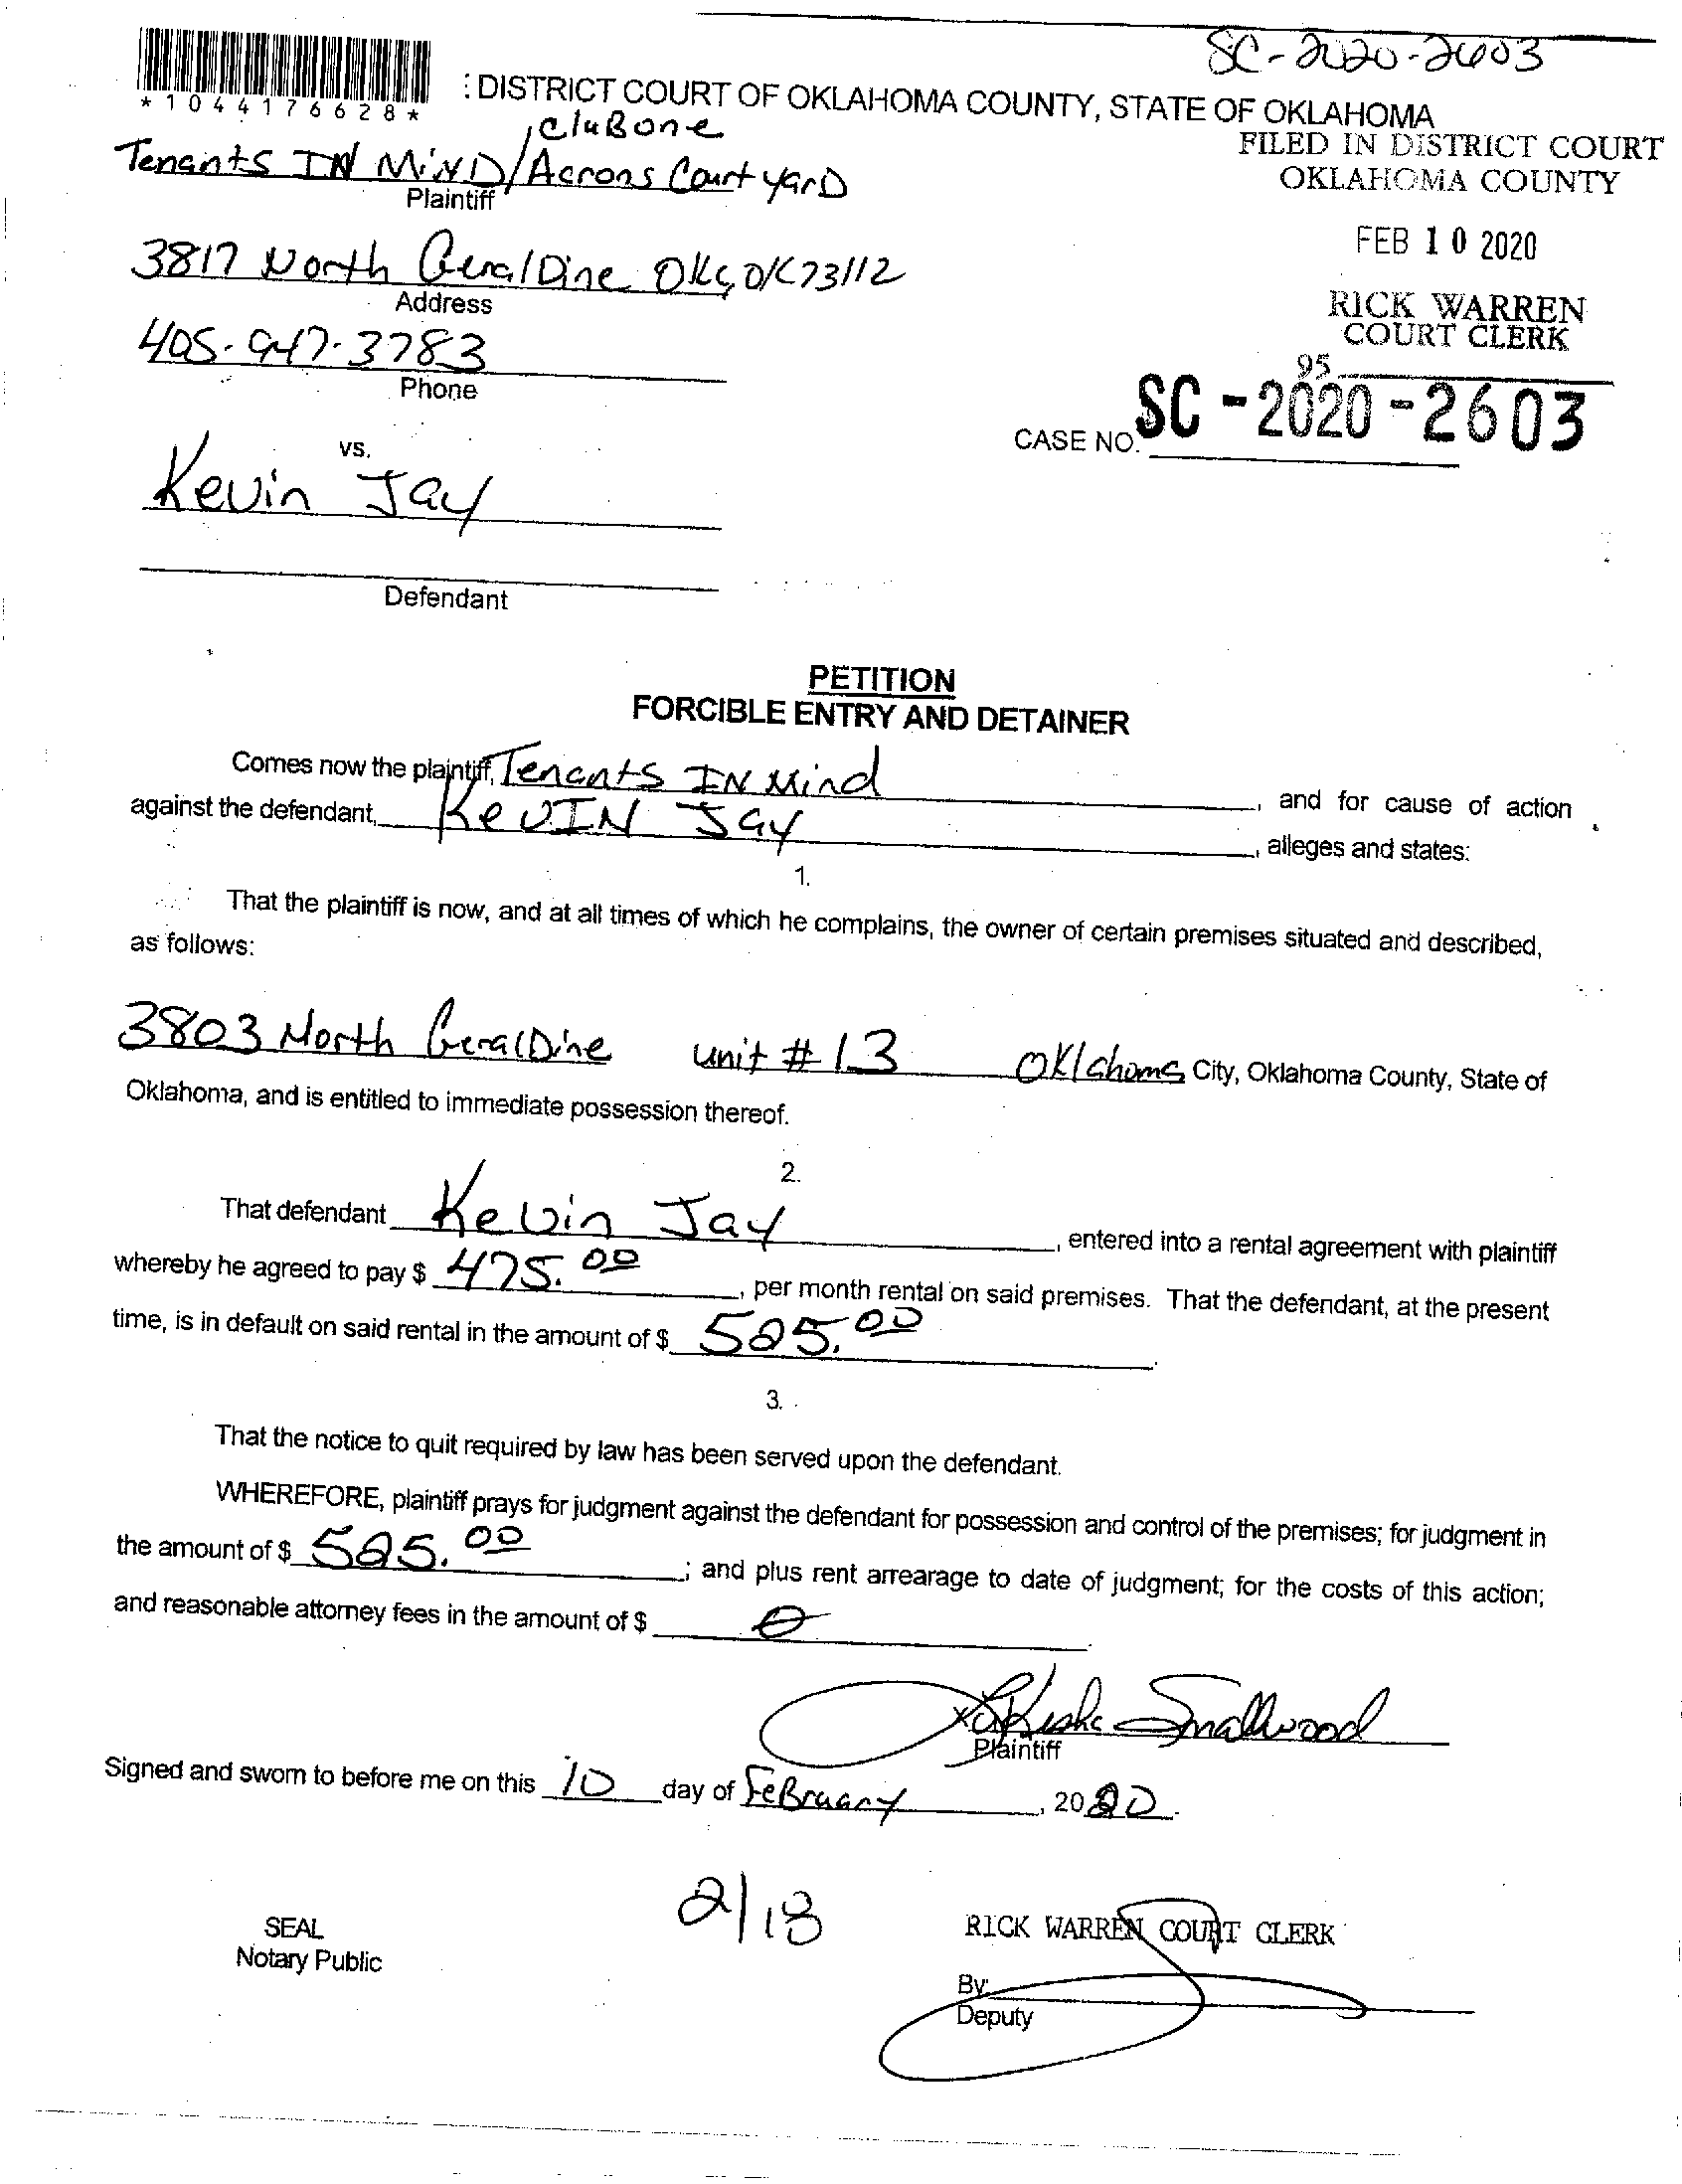 SC-2020-2603
*1044176628*
: DISTRICT COURT OF OKLAHOMA COUNTY, STATE OF OKLAHOMA
FILED IN DISTRICT COURT
OKLAHOMA COUNTY
FEB 10 2020
RICK WARREN
COURT CLERK
95
CASE NO. SC-2020-2603
CluBone
Tenants IN MiND/Acrons CourtyarD
Plaintiff
3817 North GeralDine OKC, OK 73112
Address
405-947-3783
Phone
vs.
Kevin Jay
Defendant
PETITION
FORCIBLE ENTRY AND DETAINER
Comes now the plaintiff, Tenants IN Mind, and for cause of action
against the defendant, KeVIN Jay, alleges and states:
1.
That the plaintiff is now, and at all times of which he complains, the owner of certain premises situated and described,
as follows:
3803 North GeralDine unit # 13 OKlahoma City, Oklahoma County, State of
Oklahoma, and is entitled to immediate possession thereof.
2.
That defendant Kevin Jay, entered into a rental agreement with plaintiff
whereby he agreed to pay $ 475.00, per month rental on said premises. That the defendant, at the present
time, is in default on said rental in the amount of $ 525.00.
3.
That the notice to quit required by law has been served upon the defendant.
WHEREFORE, plaintiff prays for judgment against the defendant for possession and control of the premises; for judgment in
the amount of $ 525.00; and plus rent arrearage to date of judgment; for the costs of this action;
and reasonable attorney fees in the amount of $ 0.
LaKisha Smallwood
Plaintiff
Signed and sworn to before me on this 10 day of FeBruary, 2020.
2/18
SEAL
Notary Public
RICK WARREN COURT CLERK
By:
Deputy